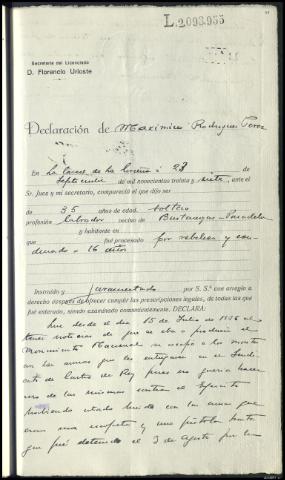 L.2.093.955
Secretaría del Licenciado
D. Florencio Uríoste
Declaración de Maximino Rodriguez Perez
En La Carcel de La Coruña a 28
Septiembre de mil novecientos treinta y siete, ante el
Sr. Juez y mi secretario, compareció el que dijo ser
de 35 años de edad, soltero
profesión labrador vecino de
y habitante en
que fué procesado por rebelion y con-
denado a 16 años
Instruido y juramentado por S. S.ª con arreglo a
derecho después de ofrecer cumplir las prescripciones legales, de todas las que
fué enterado, siendo examinado convenientemente, DECLARA:
Que desde el dia 15 de Julio de 1936 al
tener noticias de que se iba a producir el
Movimiento Nacional se escapo a los montes
con las armas que les entregaron en el Sindi-
cato de Lastra de Rey pues no queria hacer
uso de las mismas contra el Ejercito
habiendo estado huido con las armas que
eran una escopeta y una pistola hasta
que fué detenido el 3 de Agosto por la